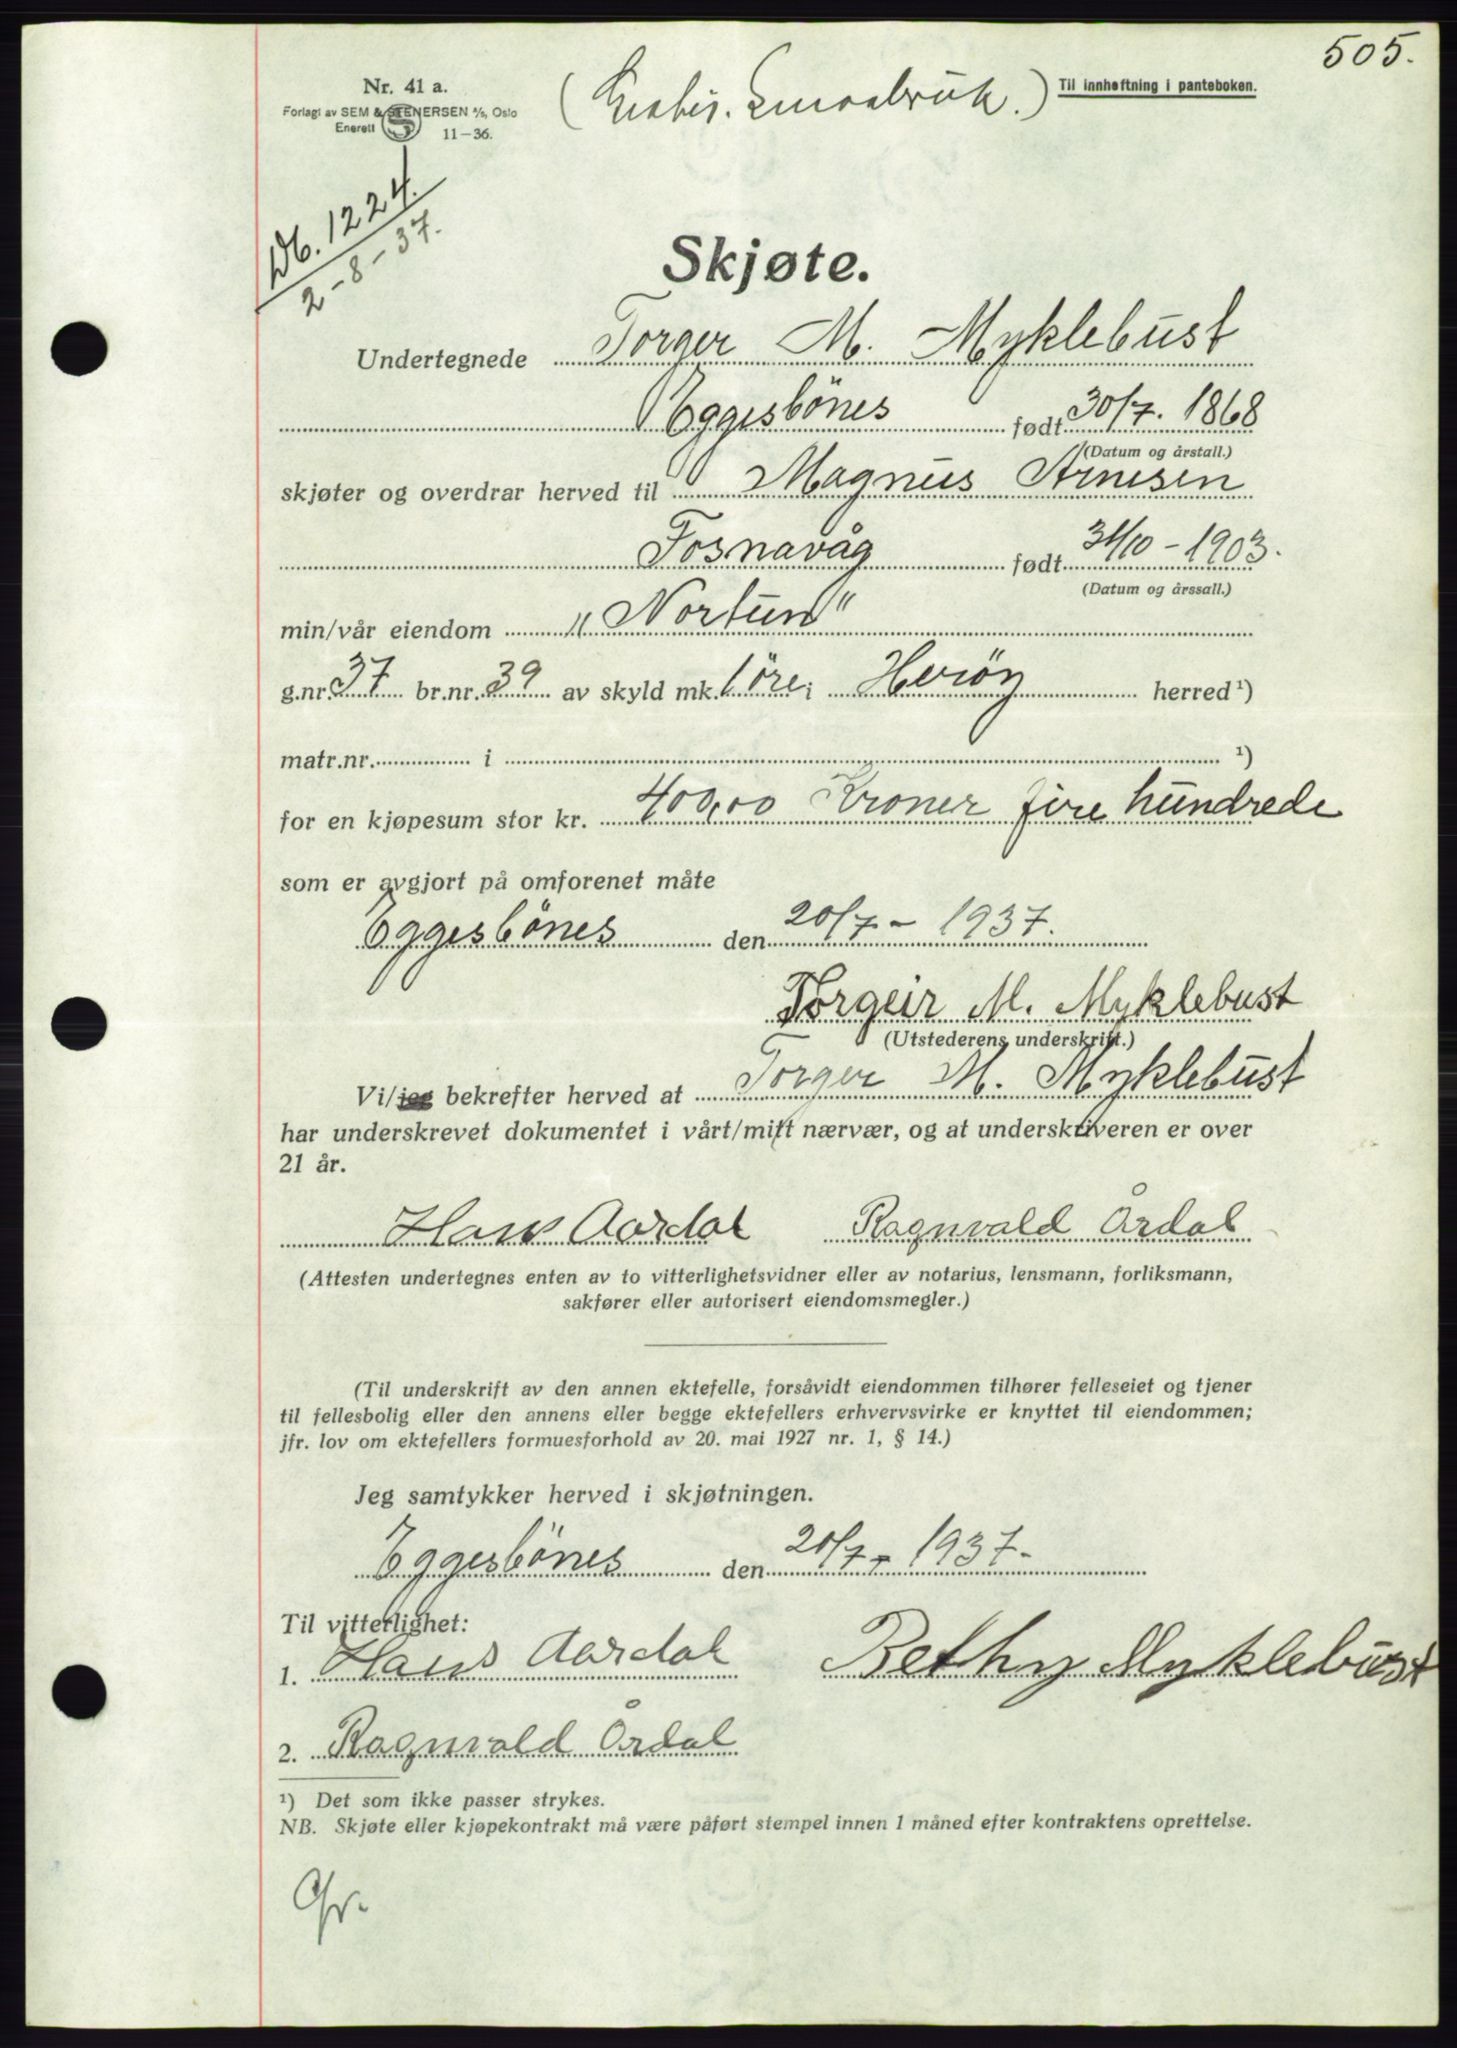 505.
Nr. 41 a.
Forlagt av SEM & STENERSEN A/S, Oslo
Enerett 11—36.
Til innheftning i panteboken.
Db. 1224.
2-8-37.
Skjøte.
Undertegnede Torger M. Myklebust
Eggesbönes født 30/7. 1868
(Datum og årstall.)
skjøter og overdrar herved til Magnus Arnesen
Fosnavåg født 31/10 - 1903.
(Datum og årssall.)
min/vår eiendom "Nortun"
g.nr. 37 br.nr. 39 av skyld mk. 1 öre i Heröy herred ¹)
matr.nr. i ¹)
for en kjøpesum stor kr. 400,00 Kroner fire hundrede
som er avgjort på omforenet måte
Eggesbönes den 20/7 - 1937.
Torgeir M. Myklebust
(Utstederens underskrift.)
Vi/jeg bekrefter herved at Torger M. Myklebust
har underskrevet dokumentet i vårt/mitt nærvær, og at underskriveren er over
21 år.
Hans Aardal Ragnvald Årdal
(Attesten undertegnes enten av to vitterlighetsvidner eller av notarius, lensmann, forliksmann,
sakfører eller autorisert eiendomsmegler.)
(Til underskrift av den annen ektefelle, forsåvidt eiendommen tilhører felleseiet og tjener
til fellesbolig eller den annens eller begge ektefellers erhvervsvirke er knyttet til eiendommen;
jfr. lov om ektefellers formuesforhold av 20. mai 1927 nr. 1, § 14.)
Jeg samtykker herved i skjøtningen.
Eggesbönes den 20/7 - 1937-
Til vitterlighet:
1. Hans Aardal Bethy Myklebust
2. Ragnvald Årdal
¹) Det som ikke passer strykes.
NB. Skjøte eller kjøpekontrakt må være påført stempel innen 1 måned efter kontraktens oprettelse.